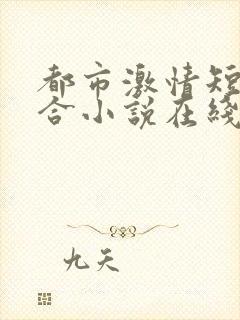 都市激情短
合小说在线
九天